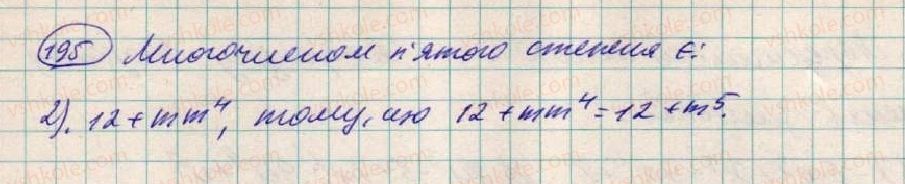 195 Многочленом п'ятого степеня є:
2). 12 + mm⁴, тому, що 12 + mm⁴ = 12 + m⁵.